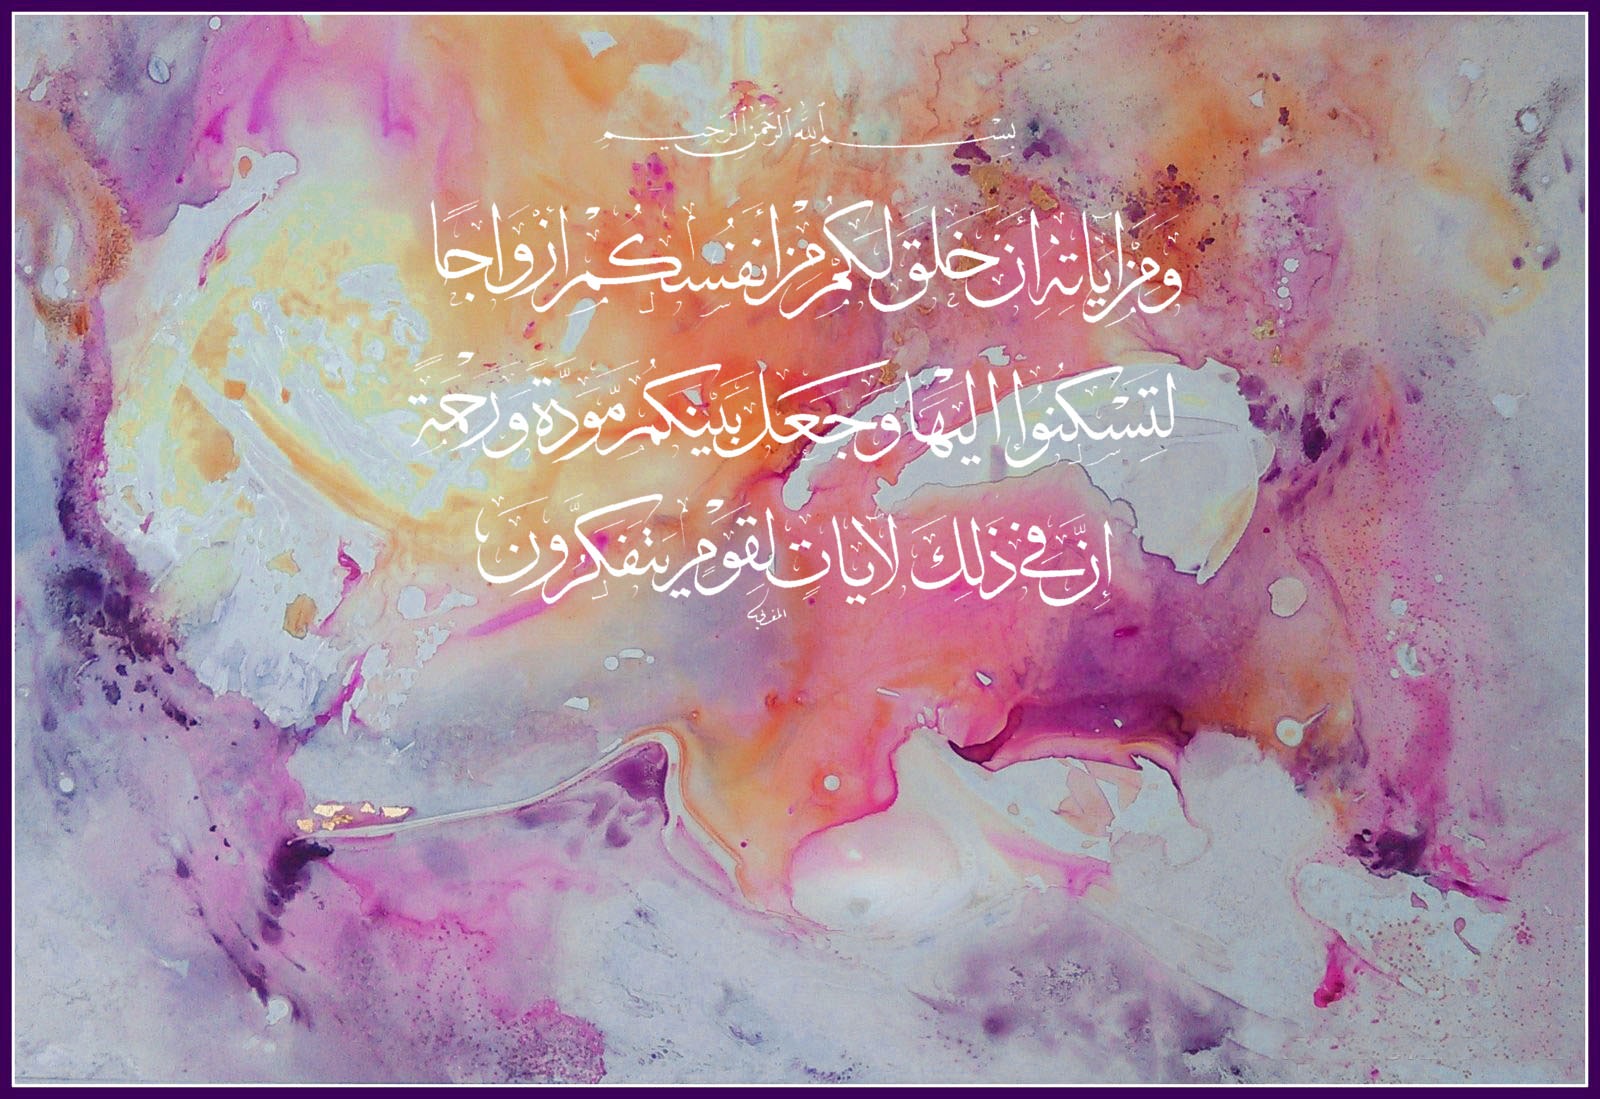 بِسْمِ ٱللَّهِ ٱلرَّحْمَٰنِ ٱلرَّحِيمِ
وَمِنْ آيَاتِهِ أَنْ خَلَقَ لَكُمْ مِنْ أَنْفُسِكُمْ أَزْوَاجًا
لِتَسْكُنُوا إِلَيْهَا وَجَعَلَ بَيْنَكُمْ مَّوَدَّةً وَرَحْمَةً
إِنَّ فِي ذَلِكَ لَآيَاتٍ لِقَوْمٍ يَتَفَكَّرُونَ